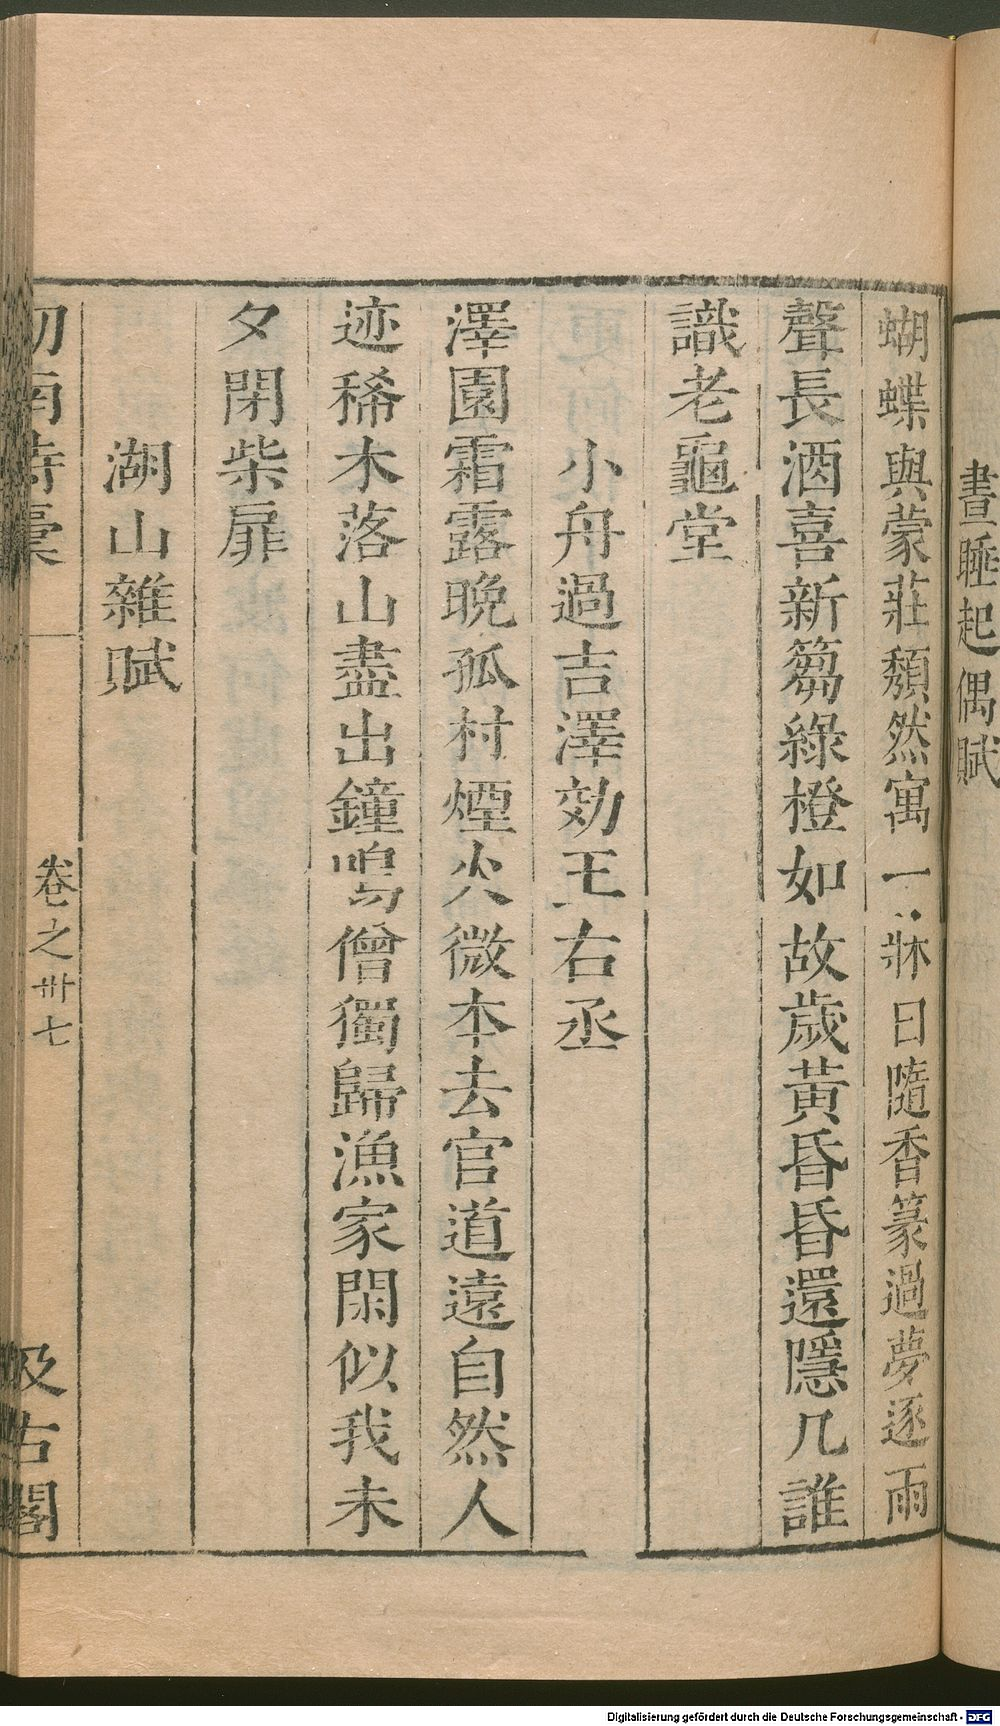 晝睡起偶賦
蝴蝶與蒙莊頽然寓一牀日隨香篆過夢逐雨
聲長酒喜新篘綠橙如故歲黃昏昏還隱几誰
識老龜堂
小舟過吉澤効王右丞
澤園霜露晚孤村煙火微本去官道遠自然人
迹稀木落山盡出鐘鳴僧獨歸漁家閑似我未
夕閉柴扉
湖山雜賦
劒南詩稾
卷之卅七
汲古閣
Digitalisierung gefördert durch die Deutsche Forschungsgemeinschaft - DFG